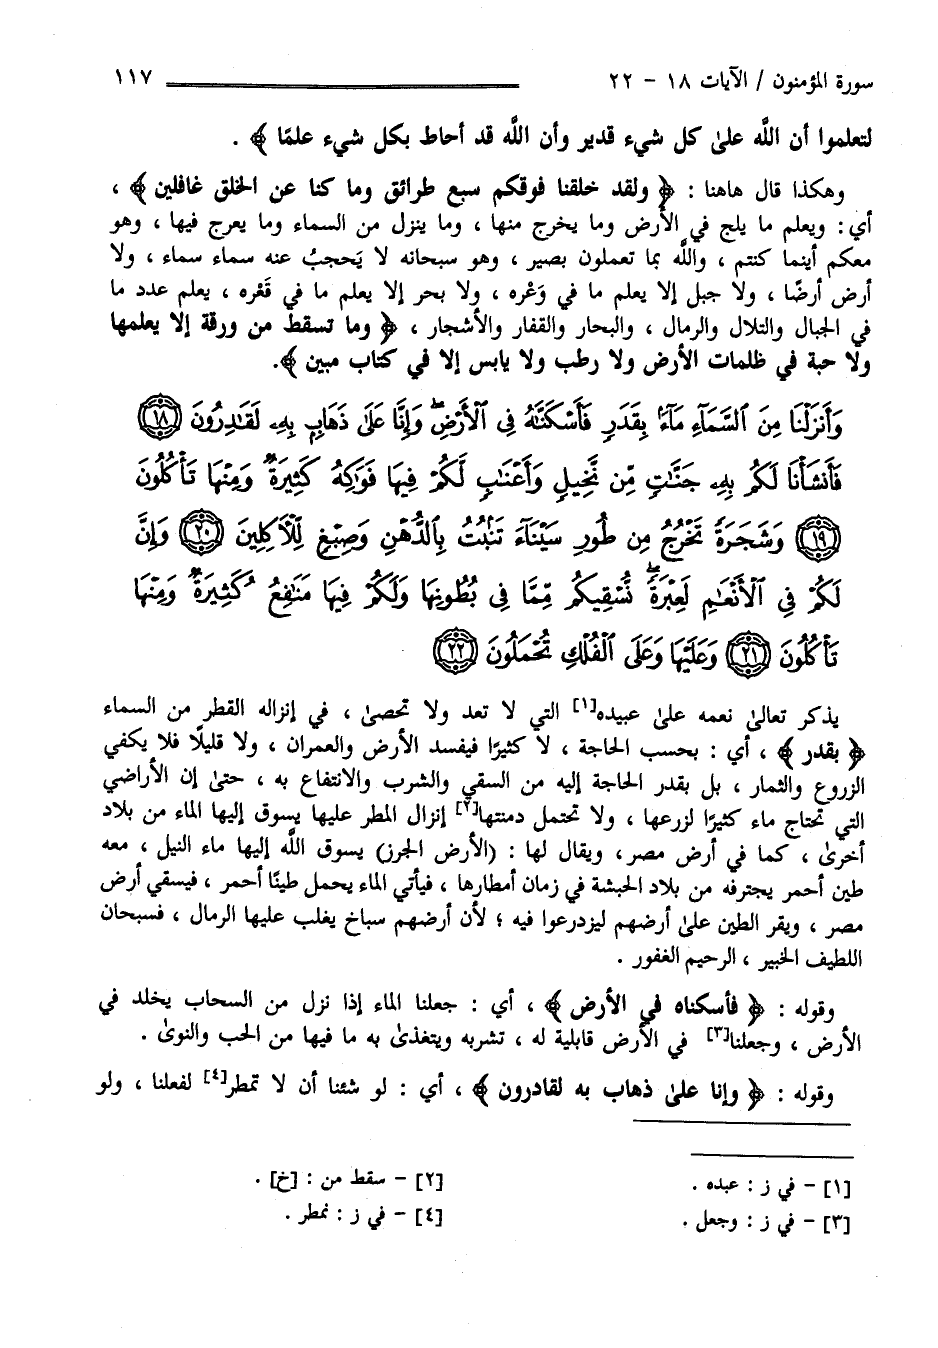 سورة المؤمنون / الآيات ١٨ - ٢٢ ١١٧
لتعلموا أن اللَّه علىٰ كل شيء قدير وأن اللَّه قد أحاط بكل شيء علمًا ﴾ .
وهكذا قال هاهنا : ﴿ ولقد خلقنا فوقكم سبع طرائق وما كنا عن الخلق غافلين ﴾ ،
أي : ويعلم ما يلج في الأرض وما يخرج منها ، وما ينزل من السماء وما يعرج فيها ، وهو
معكم أينما كنتم ، واللَّه بما تعملون بصير ، وهو سبحانه لا يَحجبُ عنه سماء سماء ، ولا
أرض أرضًا ، ولا جبل إلا يعلم ما في وَعْره ، ولا بحر إلا يعلم ما في قَعْره ، يعلم عدد ما
في الجبال والتلال والرمال ، والبحار والقفار والأشجار ، ﴿ وما تسقط من ورقة إلا يعلمها
ولا حبة في ظلمات الأرض ولا رطب ولا يابس إلا في كتاب مبين ﴾.
وَأَنزَلْنَا مِنَ ٱلسَّمَآءِ مَآءًۢ بِقَدَرٍ فَأَسْكَنَّـٰهُ فِى ٱلْأَرْضِۖ وَإِنَّا عَلَىٰ ذَهَابٍۭ بِهِۦ لَقَـٰدِرُونَ ﴿١٨﴾
فَأَنشَأْنَا لَكُم بِهِۦ جَنَّـٰتٍ مِّن نَّخِيلٍ وَأَعْنَـٰبٍ لَّكُمْ فِيهَا فَوَٰكِهُ كَثِيرَةٌ وَمِنْهَا تَأْكُلُونَ
﴿١٩﴾ وَشَجَرَةً تَخْرُجُ مِن طُورِ سَيْنَآءَ تَنۢبُتُ بِٱلدُّهْنِ وَصِبْغٍ لِّلْـَٔاكِلِينَ ﴿٢٠﴾ وَإِنَّ
لَكُمْ فِى ٱلْأَنْعَـٰمِ لَعِبْرَةًۖ نُّسْقِيكُم مِّمَّا فِى بُطُونِهَا وَلَكُمْ فِيهَا مَنَـٰفِعُ كَثِيرَةٌ وَمِنْهَا
تَأْكُلُونَ ﴿٢١﴾ وَعَلَيْهَا وَعَلَى ٱلْفُلْكِ تُحْمَلُونَ ﴿٢٢﴾
يذكر تعالىٰ نعمه علىٰ عبيده[١] التي لا تعد ولا تحصىٰ ، في إنزاله القطر من السماء
﴿ بقدر ﴾ ، أي : بحسب الحاجة ، لا كثيرًا فيفسد الأرض والعمران ، ولا قليلًا فلا يكفي
الزروع والثمار ، بل بقدر الحاجة إليه من السقي والشرب والانتفاع به ، حتىٰ إن الأراضي
التي تحتاج ماء كثيرًا لزرعها ، ولا تحتمل دمنتها[٢] إنزال المطر عليها يسوق إليها الماء من بلاد
أخرىٰ ، كما في أرض مصر ، ويقال لها : (الأرض الجرز) يسوق اللَّه إليها ماء النيل ، معه
طين أحمر يجترفه من بلاد الحبشة في زمان أمطارها ، فيأتي الماء يحمل طينًا أحمر ، فيسقي أرض
مصر ، ويقر الطين علىٰ أرضهم ليزدرعوا فيه ؛ لأن أرضهم سباخ يغلب عليها الرمال ، فسبحان
اللطيف الخبير ، الرحيم الغفور .
وقوله : ﴿ فأسكناه في الأرض ﴾ ، أي : جعلنا الماء إذا نزل من السحاب يخلد في
الأرض ، وجعلنا[٣] في الأرض قابلية له ، تشربه ويتغذىٰ به ما فيها من الحب والنوىٰ .
وقوله : ﴿ وإنا علىٰ ذهاب به لقادرون ﴾ ، أي : لو شئنا أن لا تمطر[٤] لفعلنا ، ولو
[١] - في ز : عبده .
[٢] - سقط من : [خ] .
[٣] - في ز : وجعل .
[٤] - في ز : نمطر .